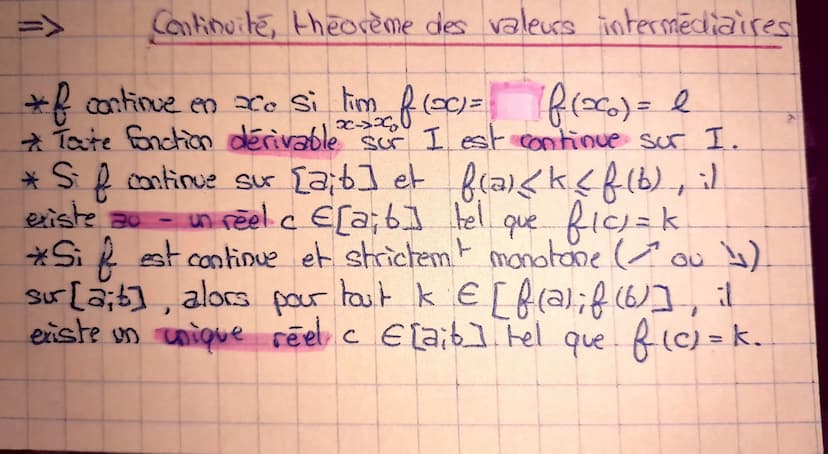 => Continuité, théorème des valeurs intermédiaires
* f continue en x₀ si lim f(x) = f(x₀) = l
x->x₀
* Toute fonction dérivable sur I est continue sur I.
* Si f continue sur [a;b] et f(a)⩽k⩽f(b), il
existe au - un réel c ∈[a;b] tel que f(c)=k
* Si f est continue et strictemᵗ monotone (↗ ou ↘)
sur [a;b], alors pour tout k ∈ [f(a);f(b)], il
existe un unique réel c ∈[a;b] tel que f(c)=k.